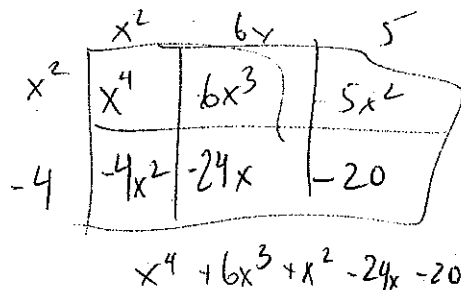 x² 6x 5
x² x⁴ 6x³ 5x²
-4 -4x² -24x -20
x⁴ +6x³ +x² -24x -20